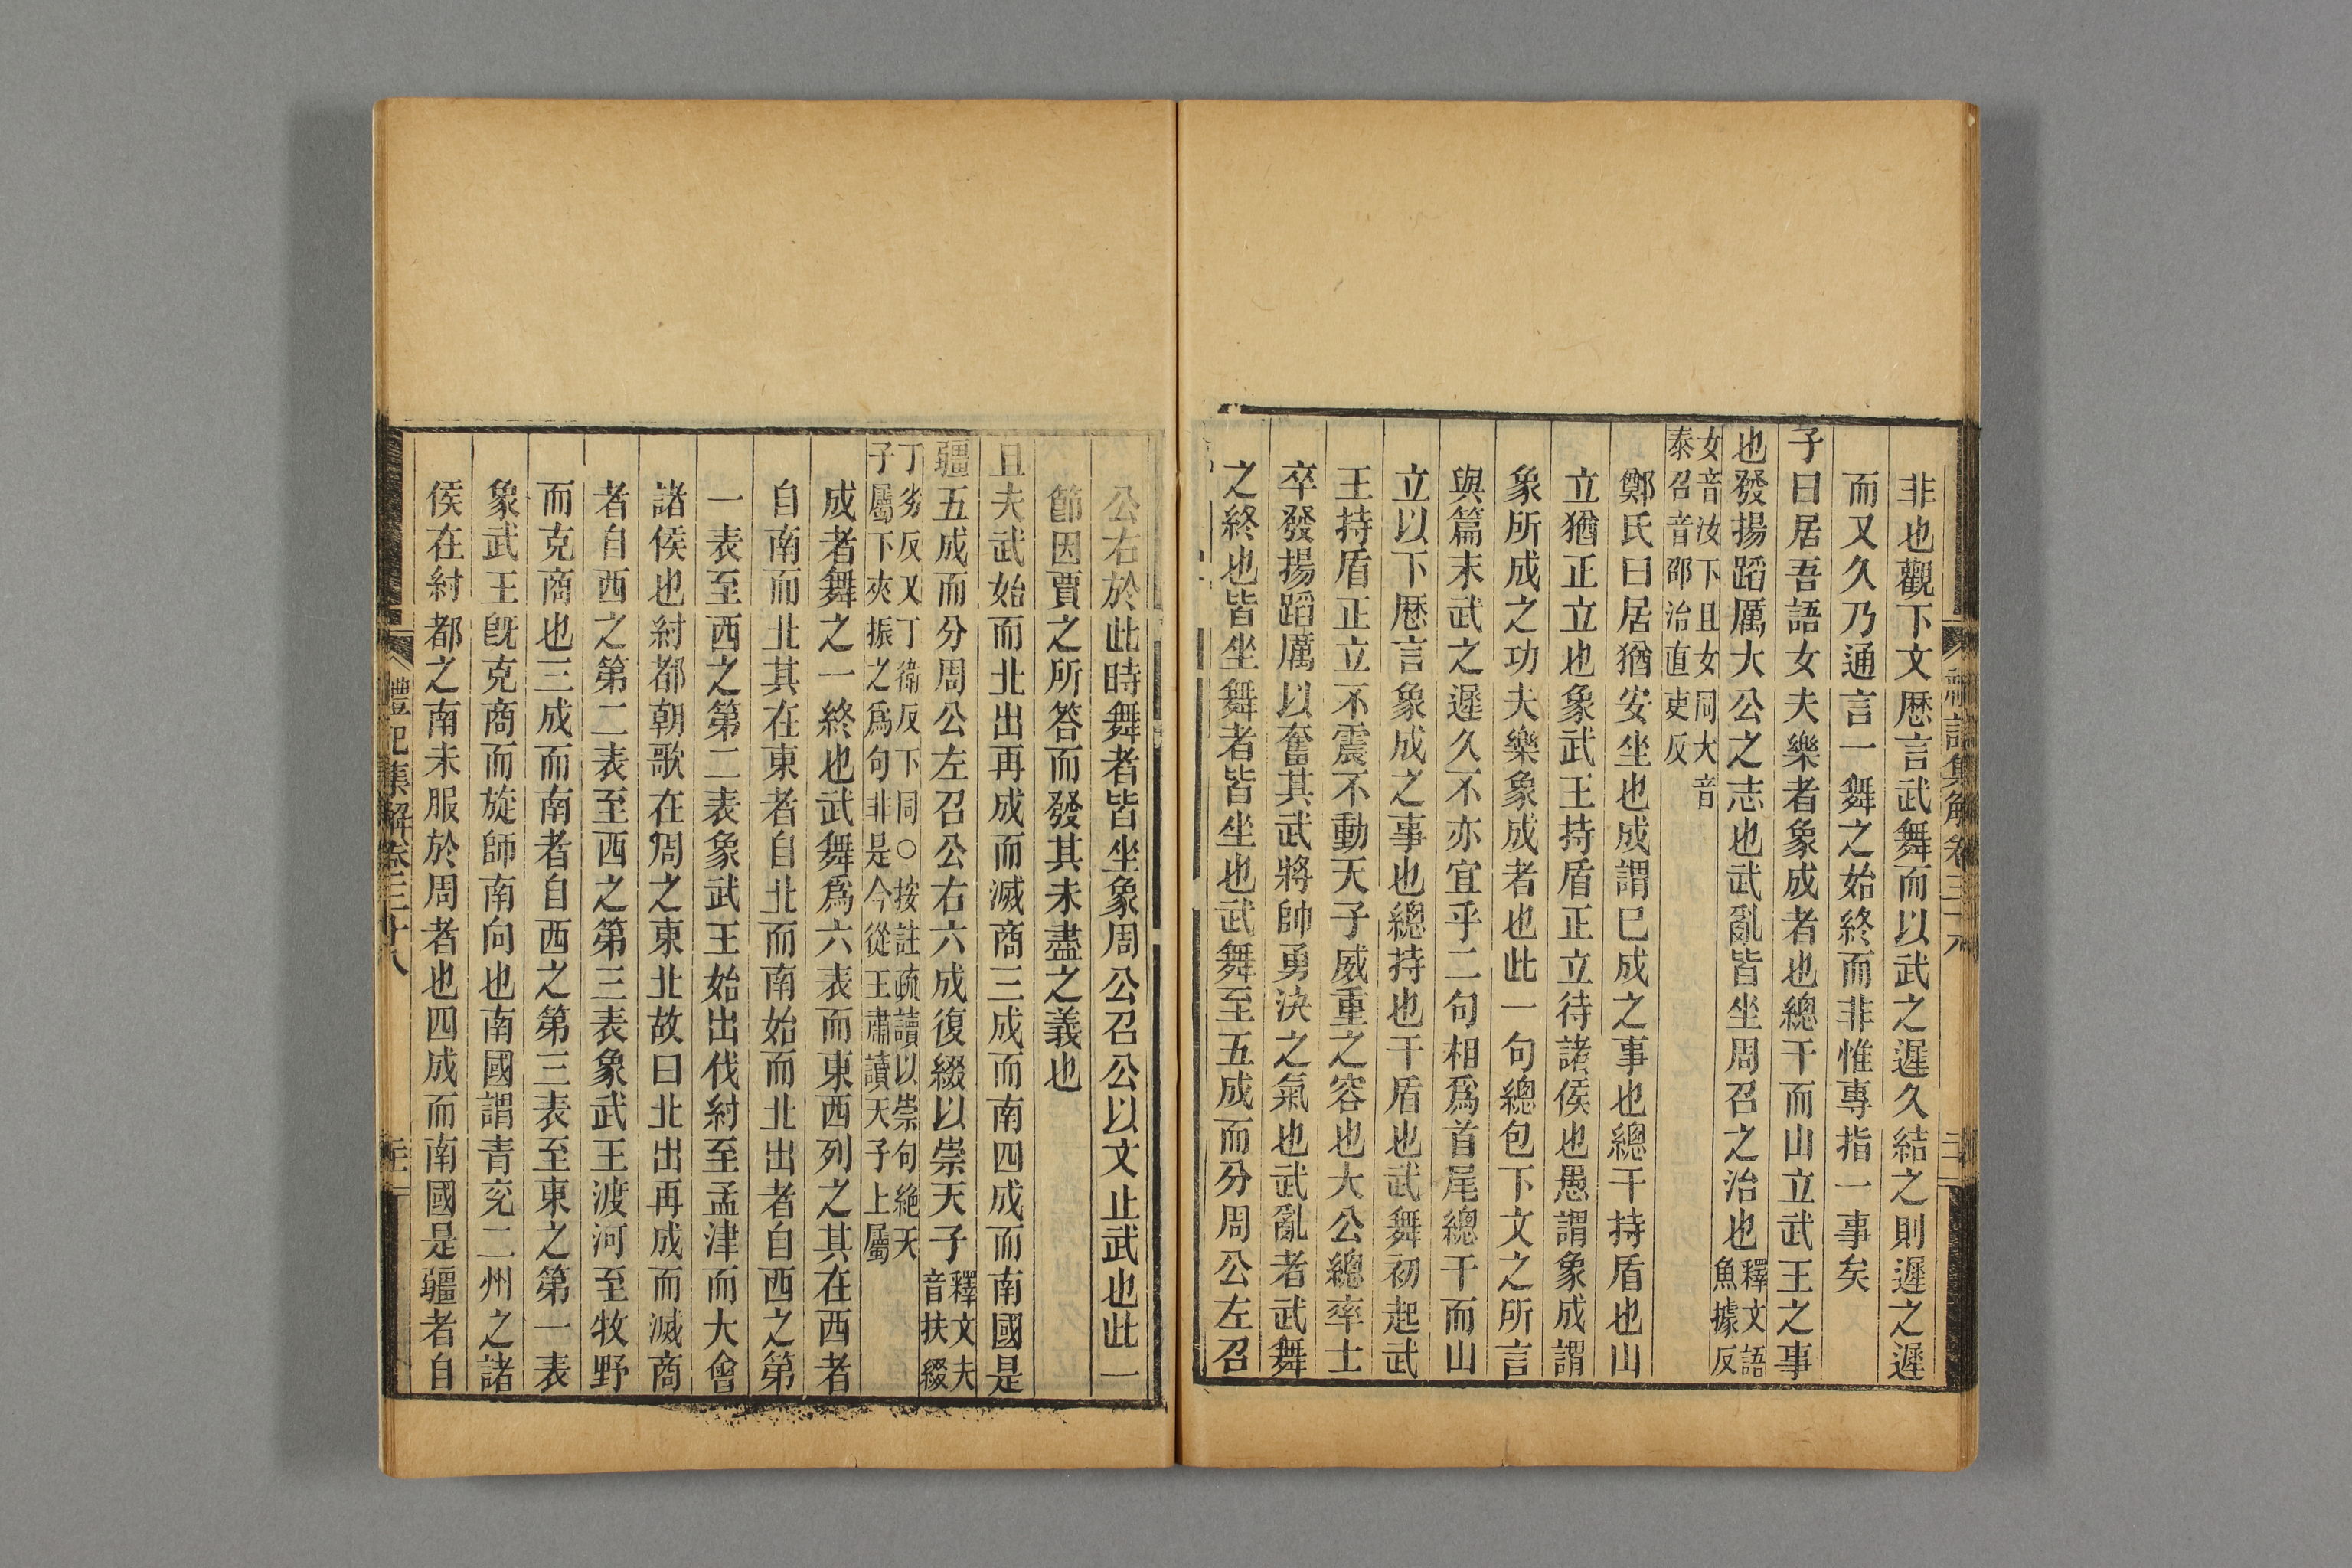 非也觀下文歷言武舞而以武之遲久結之則遲之遲
而又久乃通言一舞之始終而非惟專指一事矣
子曰居吾語女夫樂者象成者也總干而山立武王之事
也發揚蹈厲大公之志也武亂皆坐周召之治也釋文語魚據反
女音汝下且女同大音泰召音邵治直吏反
鄭氏曰居猶安坐也成謂已成之事也總干持盾也山
立猶正立也象武王持盾正立待諸侯也愚謂象成謂
象所成之功夫樂象成者也此一句總包下文之所言
與篇末武之遲久不亦宜乎二句相爲首尾總干而山
立以下歷言象成之事也總持也干盾也武舞初起武
王持盾正立不震不動天子威重之容也大公總率士
卒發揚蹈厲以奮其武將帥勇決之氣也武亂者武舞
之終也皆坐舞者皆坐也武舞至五成而分周公左召
公右於此時舞者皆坐象周公召公以文止武也此一
節因賈之所答而發其未盡之義也
且夫武始而北出再成而滅商三成而南四成而南國是
疆五成而分周公左召公右六成復綴以崇天子釋文夫音扶綴
丁劣反又丁衛反下同○按註疏讀以崇句絶天子屬下夾振之爲句非是今從王肅讀天子上屬
成者舞之一終也武舞爲六表而東西列之其在西者
自南而北其在東者自北而南始而北出者自西之第
一表至西之第二表象武王始出伐紂至孟津而大會
諸侯也紂都朝歌在周之東北故曰北出再成而滅商
者自西之第二表至西之第三表象武王渡河至牧野
而克商也三成而南者自西之第三表至東之第一表
象武王旣克商而旋師南向也南國謂青兗二州之諸
侯在紂都之南未服於周者也四成而南國是疆者自
禮記集解卷三十八